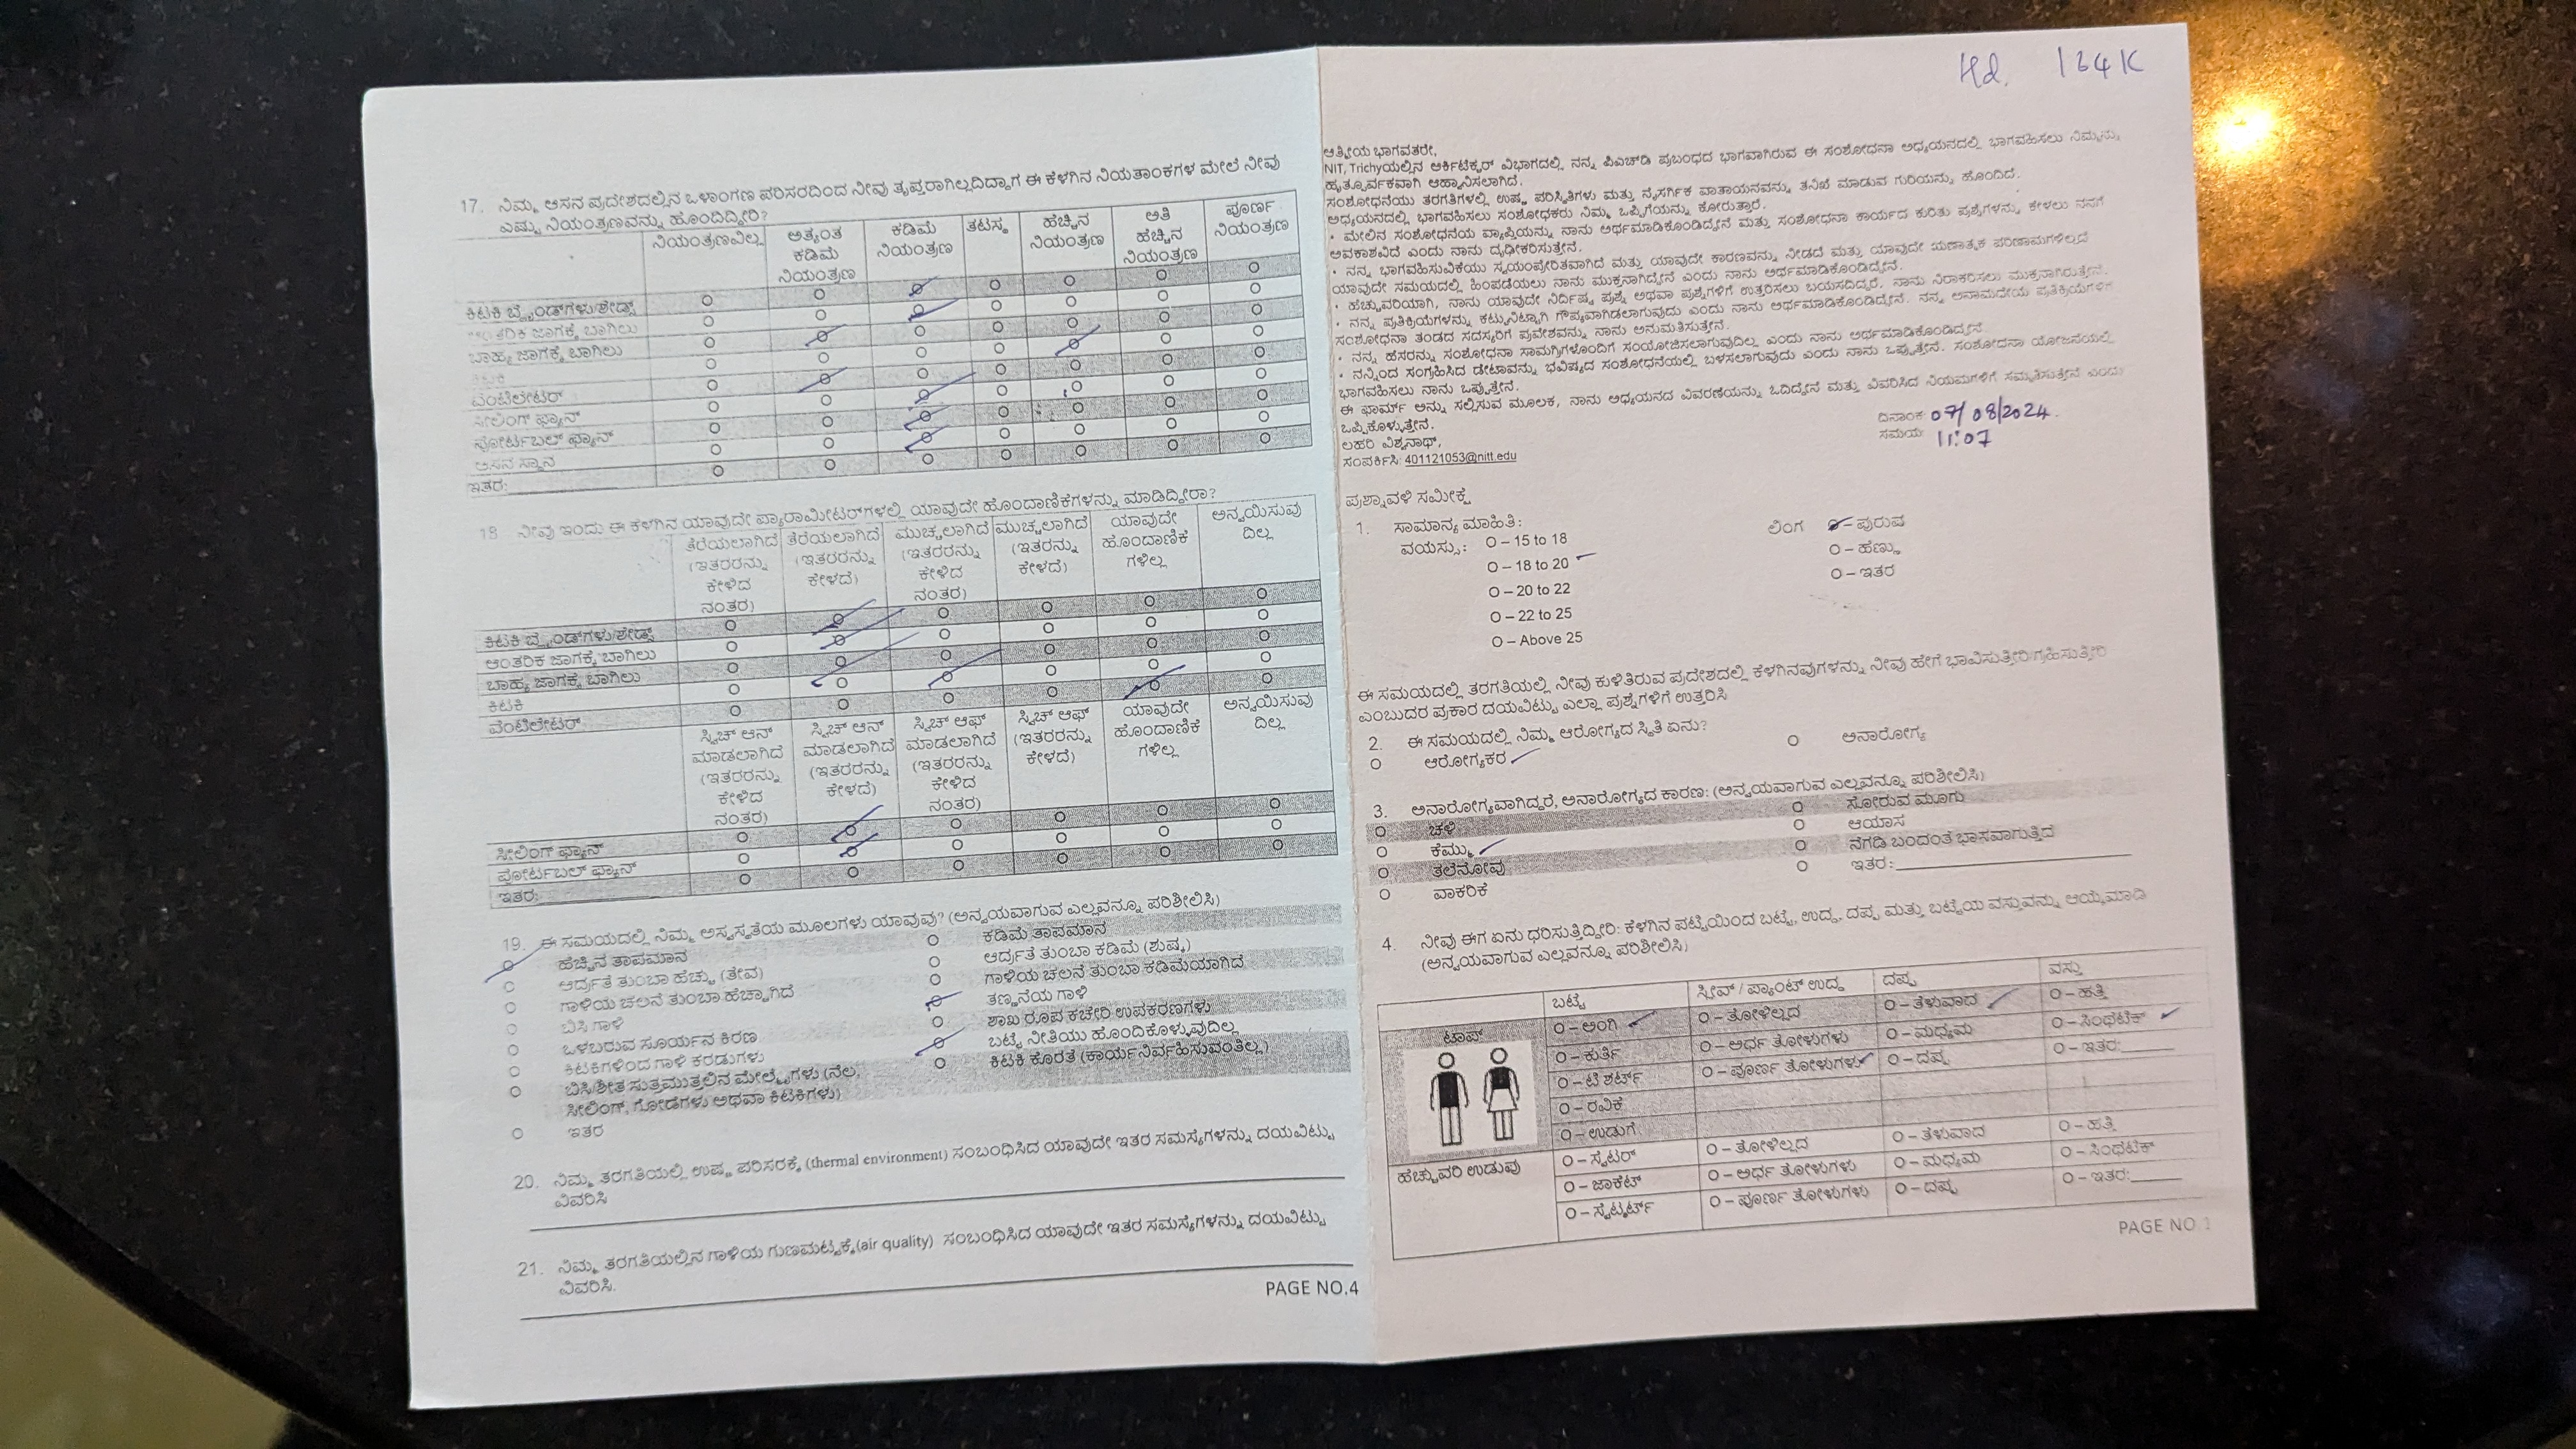 17. ನಿಮ್ಮ ಆಸನ ಪ್ರದೇಶದಲ್ಲಿನ ಒಳಾಂಗಣ ಪರಿಸರದಿಂದ ನೀವು ತೃಪ್ತರಾಗಿಲ್ಲದಿದ್ದಾಗ ಈ ಕೆಳಗಿನ ನಿಯತಾಂಕಗಳ ಮೇಲೆ ನೀವು
ಎಷ್ಟು ನಿಯಂತ್ರಣವನ್ನು ಹೊಂದಿದ್ದೀರಿ?
ನಿಯಂತ್ರಣವಿಲ್ಲ ಅತ್ಯಂತ ಕಡಿಮೆ ನಿಯಂತ್ರಣ ಕಡಿಮೆ ನಿಯಂತ್ರಣ ತಟಸ್ಥ ಹೆಚ್ಚಿನ ನಿಯಂತ್ರಣ ಅತಿ ಹೆಚ್ಚಿನ ನಿಯಂತ್ರಣ ಪೂರ್ಣ ನಿಯಂತ್ರಣ
ಕಿಟಕಿ ಬ್ಲೈಂಡ್‌ಗಳು/ಶೇಡ್ಸ್
ಜಾಗಕ್ಕೆ ಬಾಗಿಲು
ಬಾಹ್ಯ ಜಾಗಕ್ಕೆ ಬಾಗಿಲು
ಕಿಟಕಿ
ವೆಂಟಿಲೇಟರ್
ಸೀಲಿಂಗ್ ಫ್ಯಾನ್
ಪೋರ್ಟಬಲ್ ಫ್ಯಾನ್
ಆಸನ ಸ್ಥಾನ
ಇತರ:
18 ನೀವು ಇಂದು ಈ ಕೆಳಗಿನ ಯಾವುದೇ ಪ್ಯಾರಾಮೀಟರ್‌ಗಳಲ್ಲಿ ಯಾವುದೇ ಹೊಂದಾಣಿಕೆಗಳನ್ನು ಮಾಡಿದ್ದೀರಾ?
ತೆರೆಯಲಾಗಿದೆ (ಇತರರನ್ನು ಕೇಳಿದ ನಂತರ) ತೆರೆಯಲಾಗಿದೆ (ಇತರರನ್ನು ಕೇಳದೆ) ಮುಚ್ಚಲಾಗಿದೆ (ಇತರರನ್ನು ಕೇಳಿದ ನಂತರ) ಮುಚ್ಚಲಾಗಿದೆ (ಇತರನ್ನು ಕೇಳದೆ) ಯಾವುದೇ ಹೊಂದಾಣಿಕೆ ಗಳಿಲ್ಲ ಅನ್ವಯಿಸುವು ದಿಲ್ಲ
ಕಿಟಕಿ ಬ್ಲೈಂಡ್‌ಗಳು/ಶೇಡ್ಸ್
ಆಂತರಿಕ ಜಾಗಕ್ಕೆ ಬಾಗಿಲು
ಬಾಹ್ಯ ಜಾಗಕ್ಕೆ ಬಾಗಿಲು
ಕಿಟಕಿ
ವೆಂಟಿಲೇಟರ್
ಸ್ವಿಚ್ ಆನ್ ಮಾಡಲಾಗಿದೆ (ಇತರರನ್ನು ಕೇಳಿದ ನಂತರ) ಸ್ವಿಚ್ ಆನ್ ಮಾಡಲಾಗಿದೆ (ಇತರರನ್ನು ಕೇಳದೆ) ಸ್ವಿಚ್ ಆಫ್ ಮಾಡಲಾಗಿದೆ (ಇತರರನ್ನು ಕೇಳಿದ ನಂತರ) ಸ್ವಿಚ್ ಆಫ್ (ಇತರರನ್ನು ಕೇಳದೆ) ಯಾವುದೇ ಹೊಂದಾಣಿಕೆ ಗಳಿಲ್ಲ ಅನ್ವಯಿಸುವು ದಿಲ್ಲ
ಸೀಲಿಂಗ್ ಫ್ಯಾನ್
ಪೋರ್ಟಬಲ್ ಫ್ಯಾನ್
ಇತರ:
19. ಈ ಸಮಯದಲ್ಲಿ ನಿಮ್ಮ ಅಸ್ವಸ್ಥತೆಯ ಮೂಲಗಳು ಯಾವುವು? (ಅನ್ವಯವಾಗುವ ಎಲ್ಲವನ್ನೂ ಪರಿಶೀಲಿಸಿ)
ಹೆಚ್ಚಿನ ತಾಪಮಾನ ಕಡಿಮೆ ತಾಪಮಾನ
ಆರ್ದ್ರತೆ ತುಂಬಾ ಹೆಚ್ಚು (ತೇವ) ಆರ್ದ್ರತೆ ತುಂಬಾ ಕಡಿಮೆ (ಶುಷ್ಕ)
ಗಾಳಿಯ ಚಲನೆ ತುಂಬಾ ಹೆಚ್ಚಾಗಿದೆ ಗಾಳಿಯ ಚಲನೆ ತುಂಬಾ ಕಡಿಮೆಯಾಗಿದೆ
ಬಿಸಿ ಗಾಳಿ ತಣ್ಣನೆಯ ಗಾಳಿ
ಒಳಬರುವ ಸೂರ್ಯನ ಕಿರಣ ಶಾಖ ರೂಪ ಕಚೇರಿ ಉಪಕರಣಗಳು
ಕಿಟಕಿಗಳಿಂದ ಗಾಳಿ ಕರಡುಗಳು ಬಟ್ಟೆ ನೀತಿಯು ಹೊಂದಿಕೊಳ್ಳುವುದಿಲ್ಲ
ಬಿಸಿ/ಶೀತ ಸುತ್ತಮುತ್ತಲಿನ ಮೇಲ್ಮೈಗಳು (ನೆಲ, ಕಿಟಕಿ ಕೊರತೆ (ಕಾರ್ಯನಿರ್ವಹಿಸುವಂತಿಲ್ಲ)
ಸೀಲಿಂಗ್, ಗೋಡೆಗಳು ಅಥವಾ ಕಿಟಕಿಗಳು)
ಇತರ
20. ನಿಮ್ಮ ತರಗತಿಯಲ್ಲಿ ಉಷ್ಣ ಪರಿಸರಕ್ಕೆ (thermal environment) ಸಂಬಂಧಿಸಿದ ಯಾವುದೇ ಇತರ ಸಮಸ್ಯೆಗಳನ್ನು ದಯವಿಟ್ಟು
ವಿವರಿಸಿ
21. ನಿಮ್ಮ ತರಗತಿಯಲ್ಲಿನ ಗಾಳಿಯ ಗುಣಮಟ್ಟಕ್ಕೆ(air quality) ಸಂಬಂಧಿಸಿದ ಯಾವುದೇ ಇತರ ಸಮಸ್ಯೆಗಳನ್ನು ದಯವಿಟ್ಟು
ವಿವರಿಸಿ.
PAGE NO.4
Hd. 134K
ಆತ್ಮೀಯ ಭಾಗವತರೇ,
NIT, Trichyಯಲ್ಲಿನ ಆರ್ಕಿಟೆಕ್ಚರ್ ವಿಭಾಗದಲ್ಲಿ ನನ್ನ ಪಿಎಚ್‌ಡಿ ಪ್ರಬಂಧದ ಭಾಗವಾಗಿರುವ ಈ ಸಂಶೋಧನಾ ಅಧ್ಯಯನದಲ್ಲಿ ಭಾಗವಹಿಸಲು ನಿಮ್ಮನ್ನು
ಹೃತ್ಪೂರ್ವಕವಾಗಿ ಆಹ್ವಾನಿಸಲಾಗಿದೆ.
ಸಂಶೋಧನೆಯು ತರಗತಿಗಳಲ್ಲಿ ಉಷ್ಣ ಪರಿಸ್ಥಿತಿಗಳು ಮತ್ತು ನೈಸರ್ಗಿಕ ವಾತಾಯನವನ್ನು ತನಿಖೆ ಮಾಡುವ ಗುರಿಯನ್ನು ಹೊಂದಿದೆ.
ಅಧ್ಯಯನದಲ್ಲಿ ಭಾಗವಹಿಸಲು ಸಂಶೋಧಕರು ನಿಮ್ಮ ಒಪ್ಪಿಗೆಯನ್ನು ಕೋರುತ್ತಾರೆ.
• ಮೇಲಿನ ಸಂಶೋಧನೆಯ ವ್ಯಾಪ್ತಿಯನ್ನು ನಾನು ಅರ್ಥಮಾಡಿಕೊಂಡಿದ್ದೇನೆ ಮತ್ತು ಸಂಶೋಧನಾ ಕಾರ್ಯದ ಕುರಿತು ಪ್ರಶ್ನೆಗಳನ್ನು ಕೇಳಲು ನನಗೆ
ಅವಕಾಶವಿದೆ ಎಂದು ನಾನು ದೃಢೀಕರಿಸುತ್ತೇನೆ.
• ನನ್ನ ಭಾಗವಹಿಸುವಿಕೆಯು ಸ್ವಯಂಪ್ರೇರಿತವಾಗಿದೆ ಮತ್ತು ಯಾವುದೇ ಕಾರಣವನ್ನು ನೀಡದೆ ಮತ್ತು ಯಾವುದೇ ಋಣಾತ್ಮಕ ಪರಿಣಾಮಗಳಿಲ್ಲದೆ
ಯಾವುದೇ ಸಮಯದಲ್ಲಿ ಹಿಂಪಡೆಯಲು ನಾನು ಮುಕ್ತನಾಗಿದ್ದೇನೆ ಎಂದು ನಾನು ಅರ್ಥಮಾಡಿಕೊಂಡಿದ್ದೇನೆ.
• ಹೆಚ್ಚುವರಿಯಾಗಿ, ನಾನು ಯಾವುದೇ ನಿರ್ದಿಷ್ಟ ಪ್ರಶ್ನೆ ಅಥವಾ ಪ್ರಶ್ನೆಗಳಿಗೆ ಉತ್ತರಿಸಲು ಬಯಸದಿದ್ದರೆ, ನಾನು ನಿರಾಕರಿಸಲು ಮುಕ್ತನಾಗಿರುತ್ತೇನೆ.
• ನನ್ನ ಪ್ರತಿಕ್ರಿಯೆಗಳನ್ನು ಕಟ್ಟುನಿಟ್ಟಾಗಿ ಗೌಪ್ಯವಾಗಿಡಲಾಗುವುದು ಎಂದು ನಾನು ಅರ್ಥಮಾಡಿಕೊಂಡಿದ್ದೇನೆ. ನನ್ನ ಅನಾಮಧೇಯ ಪ್ರತಿಕ್ರಿಯೆಗಳಿಗೆ
ಸಂಶೋಧನಾ ತಂಡದ ಸದಸ್ಯರಿಗೆ ಪ್ರವೇಶವನ್ನು ನಾನು ಅನುಮತಿಸುತ್ತೇನೆ.
• ನನ್ನ ಹೆಸರನ್ನು ಸಂಶೋಧನಾ ಸಾಮಗ್ರಿಗಳೊಂದಿಗೆ ಸಂಯೋಜಿಸಲಾಗುವುದಿಲ್ಲ ಎಂದು ನಾನು ಅರ್ಥಮಾಡಿಕೊಂಡಿದ್ದೇನೆ
• ನನ್ನಿಂದ ಸಂಗ್ರಹಿಸಿದ ಡೇಟಾವನ್ನು ಭವಿಷ್ಯದ ಸಂಶೋಧನೆಯಲ್ಲಿ ಬಳಸಲಾಗುವುದು ಎಂದು ನಾನು ಒಪ್ಪುತ್ತೇನೆ. ಸಂಶೋಧನಾ ಯೋಜನೆಯಲ್ಲಿ
ಭಾಗವಹಿಸಲು ನಾನು ಒಪ್ಪುತ್ತೇನೆ.
ಈ ಫಾರ್ಮ್ ಅನ್ನು ಸಲ್ಲಿಸುವ ಮೂಲಕ, ನಾನು ಅಧ್ಯಯನದ ವಿವರಣೆಯನ್ನು ಓದಿದ್ದೇನೆ ಮತ್ತು ವಿವರಿಸಿದ ನಿಯಮಗಳಿಗೆ ಸಮ್ಮತಿಸುತ್ತೇನೆ ಎಂದು
ಒಪ್ಪಿಕೊಳ್ಳುತ್ತೇನೆ.
ಲಹರಿ ವಿಶ್ವನಾಥ್,
ಸಂಪರ್ಕಿಸಿ: 401121053@nitt.edu
ದಿನಾಂಕ: 07/08/2024.
ಸಮಯ: 11:07
ಪ್ರಶ್ನಾವಳಿ ಸಮೀಕ್ಷೆ
1. ಸಾಮಾನ್ಯ ಮಾಹಿತಿ:
ವಯಸ್ಸು: O – 15 to 18
O – 18 to 20
O – 20 to 22
O – 22 to 25
O – Above 25
ಲಿಂಗ O – ಪುರುಷ
O – ಹೆಣ್ಣು
O – ಇತರ
ಈ ಸಮಯದಲ್ಲಿ ತರಗತಿಯಲ್ಲಿ ನೀವು ಕುಳಿತಿರುವ ಪ್ರದೇಶದಲ್ಲಿ ಕೆಳಗಿನವುಗಳನ್ನು ನೀವು ಹೇಗೆ ಭಾವಿಸುತ್ತೀರಿ/ಗ್ರಹಿಸುತ್ತೀರಿ
ಎಂಬುದರ ಪ್ರಕಾರ ದಯವಿಟ್ಟು ಎಲ್ಲಾ ಪ್ರಶ್ನೆಗಳಿಗೆ ಉತ್ತರಿಸಿ
2. ಈ ಸಮಯದಲ್ಲಿ ನಿಮ್ಮ ಆರೋಗ್ಯದ ಸ್ಥಿತಿ ಏನು?
O ಆರೋಗ್ಯಕರ O ಅನಾರೋಗ್ಯ
3. ಅನಾರೋಗ್ಯವಾಗಿದ್ದರೆ, ಅನಾರೋಗ್ಯದ ಕಾರಣ: (ಅನ್ವಯವಾಗುವ ಎಲ್ಲವನ್ನೂ ಪರಿಶೀಲಿಸಿ)
O ಚಳಿ O ಸೋರುವ ಮೂಗು
O ಕೆಮ್ಮು O ಆಯಾಸ
O ತಲೆನೋವು O ನೆಗಡಿ ಬಂದಂತೆ ಭಾಸವಾಗುತ್ತಿದೆ
O ವಾಕರಿಕೆ O ಇತರ:
4. ನೀವು ಈಗ ಏನು ಧರಿಸುತ್ತಿದ್ದೀರಿ: ಕೆಳಗಿನ ಪಟ್ಟಿಯಿಂದ ಬಟ್ಟೆ, ಉದ್ದ, ದಪ್ಪ ಮತ್ತು ಬಟ್ಟೆಯ ವಸ್ತುವನ್ನು ಆಯ್ಕೆಮಾಡಿ
(ಅನ್ವಯವಾಗುವ ಎಲ್ಲವನ್ನೂ ಪರಿಶೀಲಿಸಿ)
ಬಟ್ಟೆ ಸ್ಲೀವ್ / ಪ್ಯಾಂಟ್ ಉದ್ದ ದಪ್ಪ ವಸ್ತು
ಟಾಪ್ O – ಅಂಗಿ O – ತೋಳಿಲ್ಲದ O – ತೆಳುವಾದ O – ಹತ್ತಿ
O – ಕುರ್ತಿ O – ಅರ್ಧ ತೋಳುಗಳು O – ಮಧ್ಯಮ O – ಸಿಂಥೆಟಿಕ್
O – ಟಿ ಶರ್ಟ್ O – ಪೂರ್ಣ ತೋಳುಗಳು O – ದಪ್ಪ O – ಇತರ:
O – ರವಿಕೆ
O – ಉಡುಗೆ
ಹೆಚ್ಚುವರಿ ಉಡುಪು O – ಸ್ವೆಟರ್ O – ತೋಳಿಲ್ಲದ O – ತೆಳುವಾದ O – ಹತ್ತಿ
O – ಜಾಕೆಟ್ O – ಅರ್ಧ ತೋಳುಗಳು O – ಮಧ್ಯಮ O – ಸಿಂಥೆಟಿಕ್
O – ಸ್ವೆಟ್ಶರ್ಟ್ O – ಪೂರ್ಣ ತೋಳುಗಳು O – ದಪ್ಪ O – ಇತರ:
PAGE NO.1